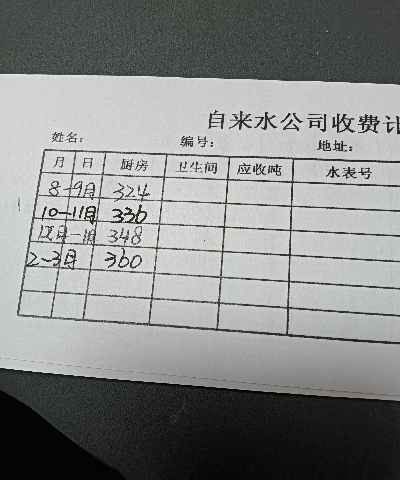 自来水公司收费计
姓名: 编号: 地址:
月 日 厨房 卫生间 应收吨 水表号
8-9月 324
10-11月 336
12月-1月 348
2-3月 360